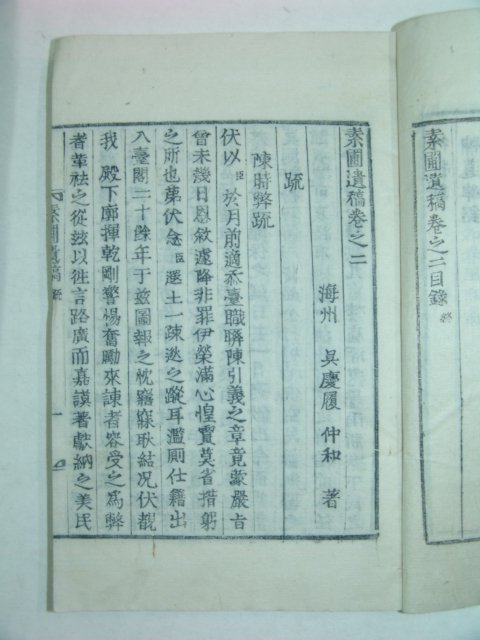 素圃遺稿卷之二目錄 終
素圃遺稿卷之二
海州 吳慶履 仲和 著
疏
陳時弊疏
伏以臣於月前適忝臺職聯陳引義之章竟蒙嚴旨
曾未幾日恩敘遽降非罪伊榮滿心惶實莫省措躬
之所也第伏念臣遐土一疎逖之蹤耳濫廁仕籍出
入臺閣二十餘年于玆圖報之忱寤寐耿結況伏覩
我 殿下廓揮乾剛警惕奮勵來諫者容受之爲弊
者革祛之從玆以往言路廣而嘉謨著獻納之美民
素圃遺稿 疏 一